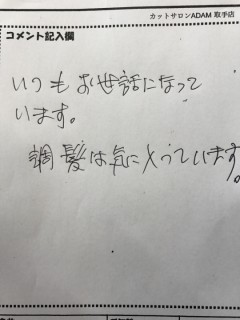 カットサロンADAM 取手店
コメント記入欄
いつもお世話になって
います。
調髪は気に入っています。